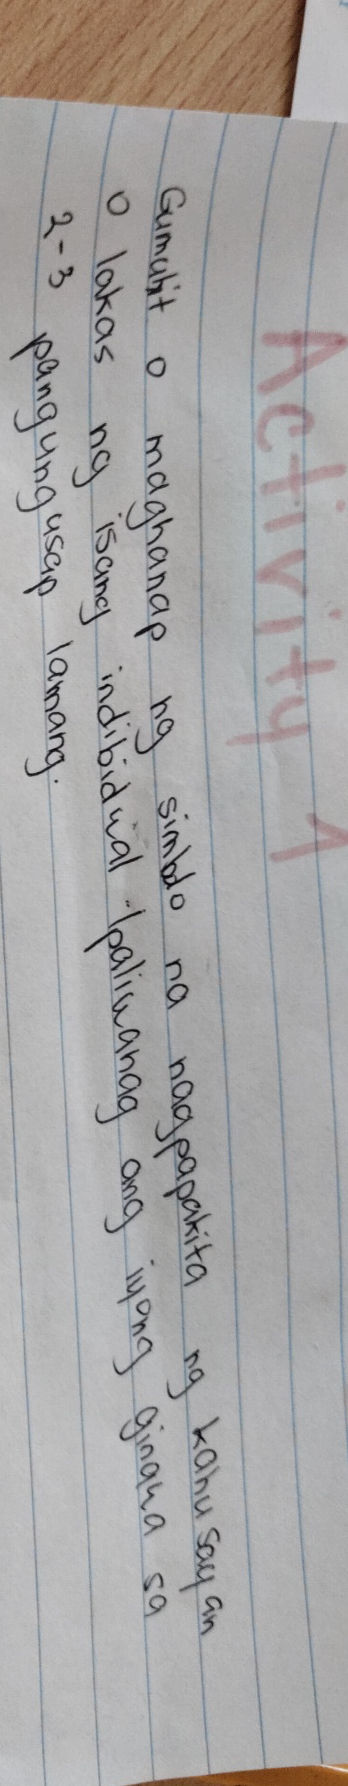 Activity 1
Gumuhit o maghanap ng simbolo na nagpapakita ng kahusayan
o lakas ng isang indibidwal. Ipaliwanag ang iyong ginawa sa
2-3 pangungusap lamang.